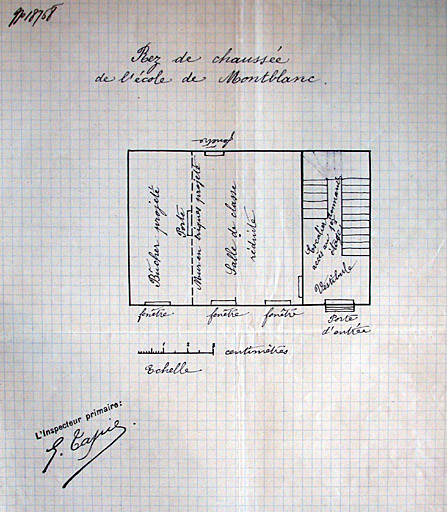 Rez de chaussée
de l'école de Montblanc.
fenêtre
Bûcher projeté
Porte
Mur en briques projeté
Salle de classe
réduite
Escalier
étage
Vestibule
fenêtre
fenêtre
fenêtre
Porte
d'entrée
centimètres
Echelle
L'Inspecteur primaire:
G. Tapie